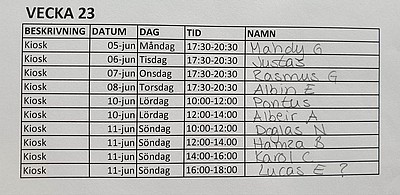 VECKA 23
BESKRIVNING DATUM DAG TID NAMN
Kiosk 05-jun Måndag 17:30-20:30 Mandy G
Kiosk 06-jun Tisdag 17:30-20:30 Justas
Kiosk 07-jun Onsdag 17:30-20:30 Rasmus G
Kiosk 08-jun Torsdag 17:30-20:30 Albin E
Kiosk 10-jun Lördag 10:00-12:00 Pontus
Kiosk 10-jun Lördag 12:00-14:00 Albeir A
Kiosk 11-jun Söndag 10:00-12:00 Doglas N
Kiosk 11-jun Söndag 12:00-14:00 Hamza B
Kiosk 11-jun Söndag 14:00-16:00 Karol C
Kiosk 11-jun Söndag 16:00-18:00 Lucas E ?